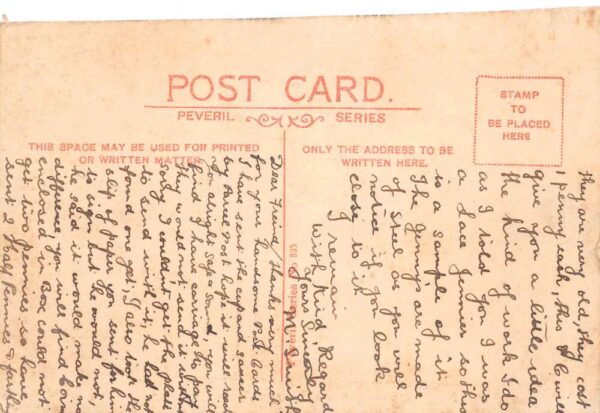 POST CARD.
PEVERIL SERIES
STAMP
TO
BE PLACED
HERE
THIS SPACE MAY BE USED FOR PRINTED
OR WRITTEN MATTER
ONLY THE ADDRESS TO BE
WRITTEN HERE.
Dear Friend, thanks very much
for your handsome P&P Cards
I have sent the cup and saucer
by Parcel Post hope it will reach
you alright safe & sound, you will
find I have carriage to pay
they would not send it without
today I couldn't get the plate
to send with it, he had not
found one yet; I also took the
slip of paper you sent for him
to sign but he would not,
he said it would make no
difference, you will find
enclosed in Box could not
get two Jennies so have
sent 2 Half Pennies &
they are very old, they cost
1 penny each, this P C will
give you a little idea
the kind of work I do
as I told you I was
a Lace
is a sample of it
The Jenny's are made
of steel as you will
notice if you look
close to it
I remain
With Kind Regards
Yours Sincerely